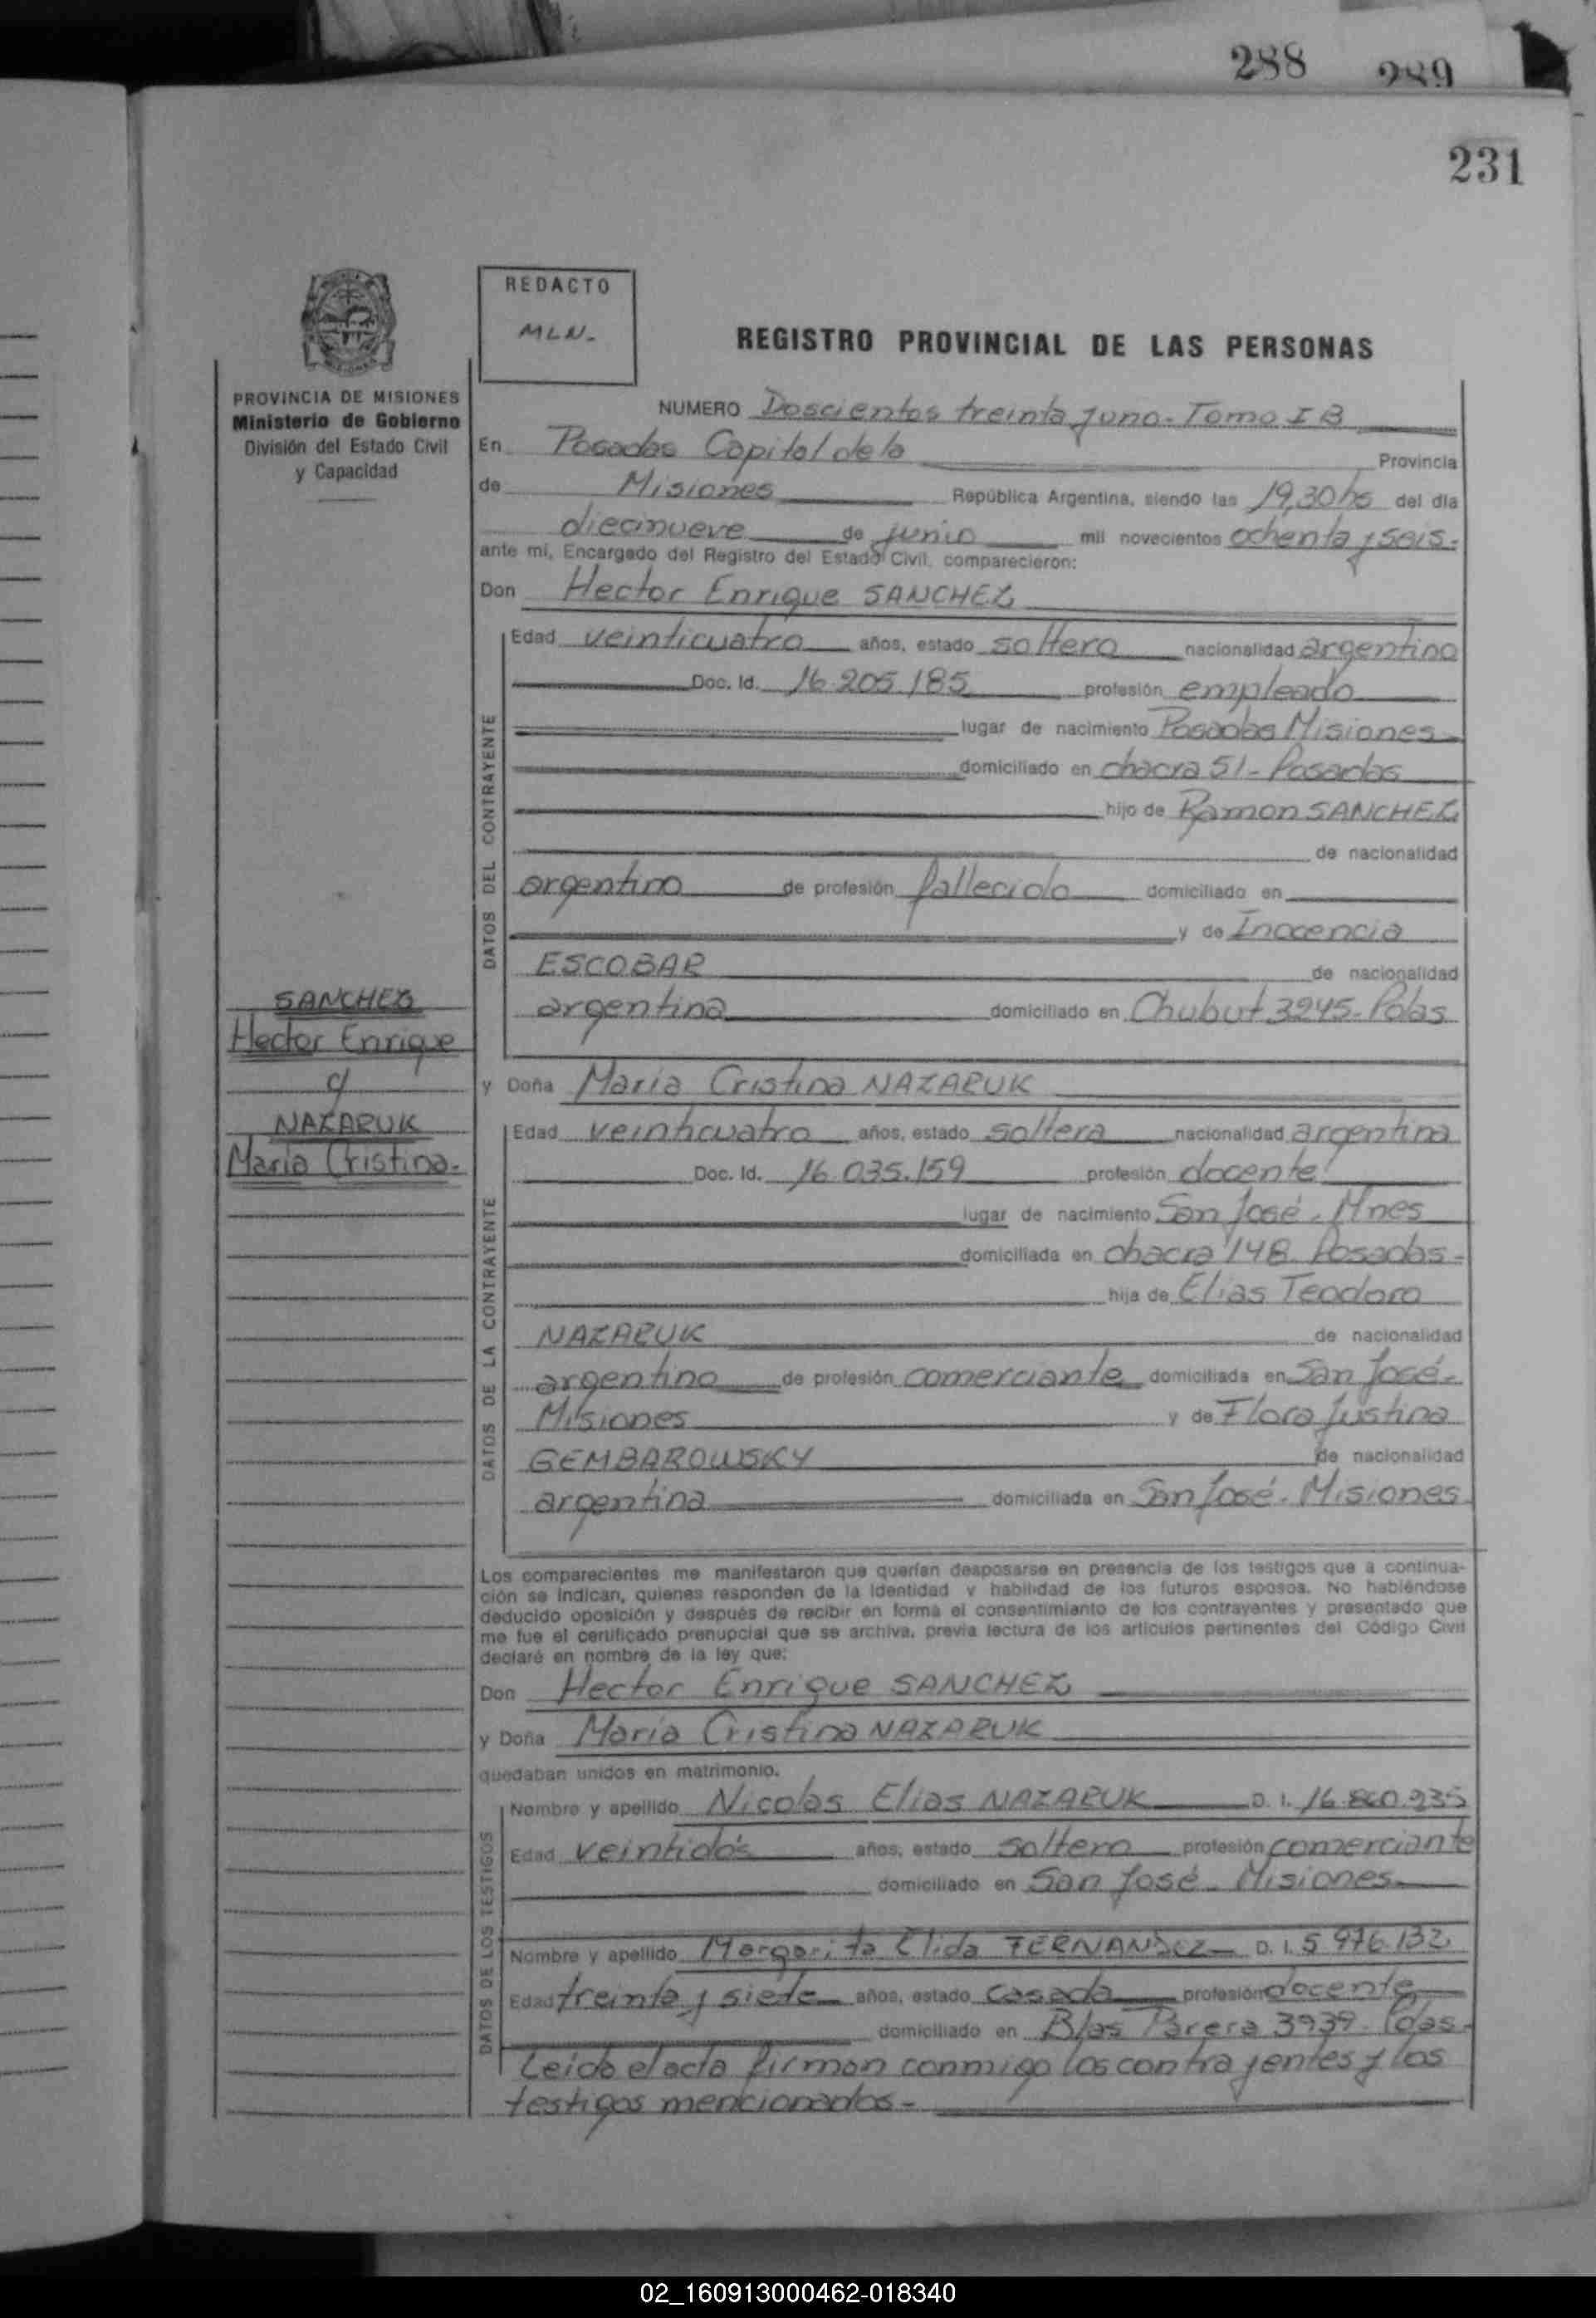 288 289
231
REDACTO
MLN-
REGISTRO PROVINCIAL DE LAS PERSONAS
PROVINCIA DE MISIONES
Ministerio de Gobierno
División del Estado Civil
y Capacidad
NUMERO Doscientos treinta y uno - Tomo I B
En Posadas Capital de la Provincia
de Misiones República Argentina, siendo las 19,30 hs del día
diecinueve de junio mil novecientos ochenta y seis.
ante mí, Encargado del Registro del Estado Civil, comparecieron:
Don Hector Enrique SANCHEZ
DATOS DEL CONTRAYENTE
Edad veinticuatro años, estado soltero nacionalidad argentino
Doc. Id. 16.205.185 profesión empleado
lugar de nacimiento Posadas Misiones
domiciliado en chacra 51 - Posadas
hijo de Ramon SANCHEZ
de nacionalidad
argentino de profesión fallecido domiciliado en
y de Inocencia
ESCOBAR de nacionalidad
argentina domiciliado en Chubut 3245 - Pdas
SANCHEZ
Hector Enrique
c/
NAZARUK
Maria Cristina.
y Doña Maria Cristina NAZARUK
DATOS DE LA CONTRAYENTE
Edad veinticuatro años, estado soltera nacionalidad argentina
Doc. Id. 16.035.159 profesión docente
lugar de nacimiento San José - Mnes
domiciliada en chacra 148 Posadas -
hija de Elias Teodoro
NAZARUK de nacionalidad
argentino de profesión comerciante domiciliada en San José -
Misiones y de Flora Justina
GEMBAROWSKY de nacionalidad
argentina domiciliada en San José - Misiones
Los comparecientes me manifestaron que querían desposarse en presencia de los testigos que a continua-
ción se indican, quienes responden de la identidad y habilidad de los futuros esposos. No habiéndose
deducido oposición y después de recibir en forma el consentimiento de los contrayentes y presentado que
me fue el certificado prenupcial que se archiva, previa lectura de los artículos pertinentes del Código Civil
declaré en nombre de la ley que:
Don Hector Enrique SANCHEZ
y Doña Maria Cristina NAZARUK
quedaban unidos en matrimonio.
DATOS DE LOS TESTIGOS
Nombre y apellido Nicolas Elias NAZARUK D. I. 16.860.235
Edad veintidós años, estado soltero profesión comerciante
domiciliado en San José - Misiones
Nombre y apellido Margarita Elida FERNANDEZ D. I. 5 976.132
Edad treinta y siete años, estado casada profesión docente
domiciliado en Blas Parera 3939 - Pdas -
Leida el acta firman conmigo los contrayentes y los
testigos mencionados -
02_160913000462-018340